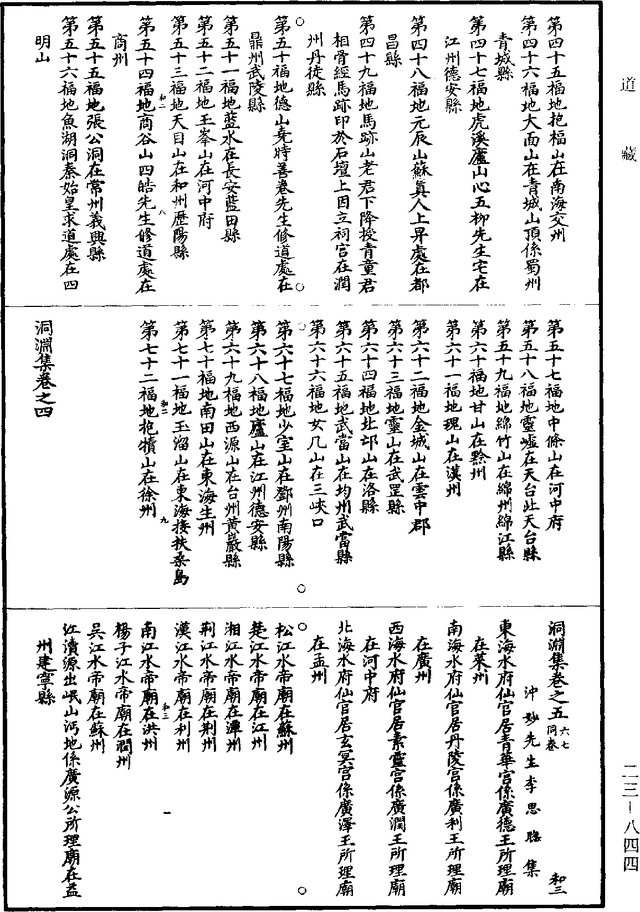 道藏
第四十五福地抱福山在南海交州
第四十六福地大面山在青城山頂係蜀州
青城縣
第四十七福地虎溪廬山心五柳先生宅在
江州德安縣
第四十八福地元辰山蘇真人上昇處在都
昌縣
第四十九福地馬跡山老君下降授青童君
相骨經馬跡印於石壇上因立祠宮在潤
州丹徒縣
第五十福地德山堯時善卷先生修道處在
鼎州武陵縣
第五十一福地藍水在長安藍田縣
第五十二福地王峯山在河中府
第五十三福地天目山在和州歷陽縣
和二
八
第五十四福地商谷山四皓先生修道處在
商州
第五十五福地張公洞在常州義興縣
第五十六福地魚湖洞秦始皇求道處在四
明山
第五十七福地中條山在河中府
第五十八福地靈墟在天台北天台縣
第五十九福地綿竹山在綿州綿江縣
第六十福地甘山在黔州
第六十一福地瑰山在漢州
第六十二福地金城山在雲中郡
第六十三福地靈山在武罡縣
第六十四福地北邙山在洛縣
第六十五福地武當山在均州武當縣
第六十六福地女几山在三峽口
第六十七福地少室山在鄧州南陽縣
第六十八福地廬山在江州德安縣
第六十九福地西源山在台州黃巖縣
第七十福地南田山在東海生州
第七十一福地玉溜山在東海接扶桑島
和二
九
第七十二福地枹犢山在徐州
洞淵集卷之四
洞淵集卷之五 六七同卷
和三
沖妙先生李思聰集
東海水府仙官居青華宮係廣德王所理廟
在萊州
南海水府仙官居丹陵宮係廣利王所理廟
在廣州
西海水府仙官居素靈宮係廣潤王所理廟
在河中府
北海水府仙官居玄冥宮係廣澤王所理廟
在孟州
松江水帝廟在蘇州
楚江水帝廟在江州
湘江水帝廟在潭州
荊江水帝廟在荊州
漢江水帝廟在利州
和三
一
南江水帝廟在洪州
楊子江水帝廟在潤州
吳江水帝廟在蘇州
江瀆源出岷山沔地係廣源公所理廟在益
州建寧縣
二三—八四四